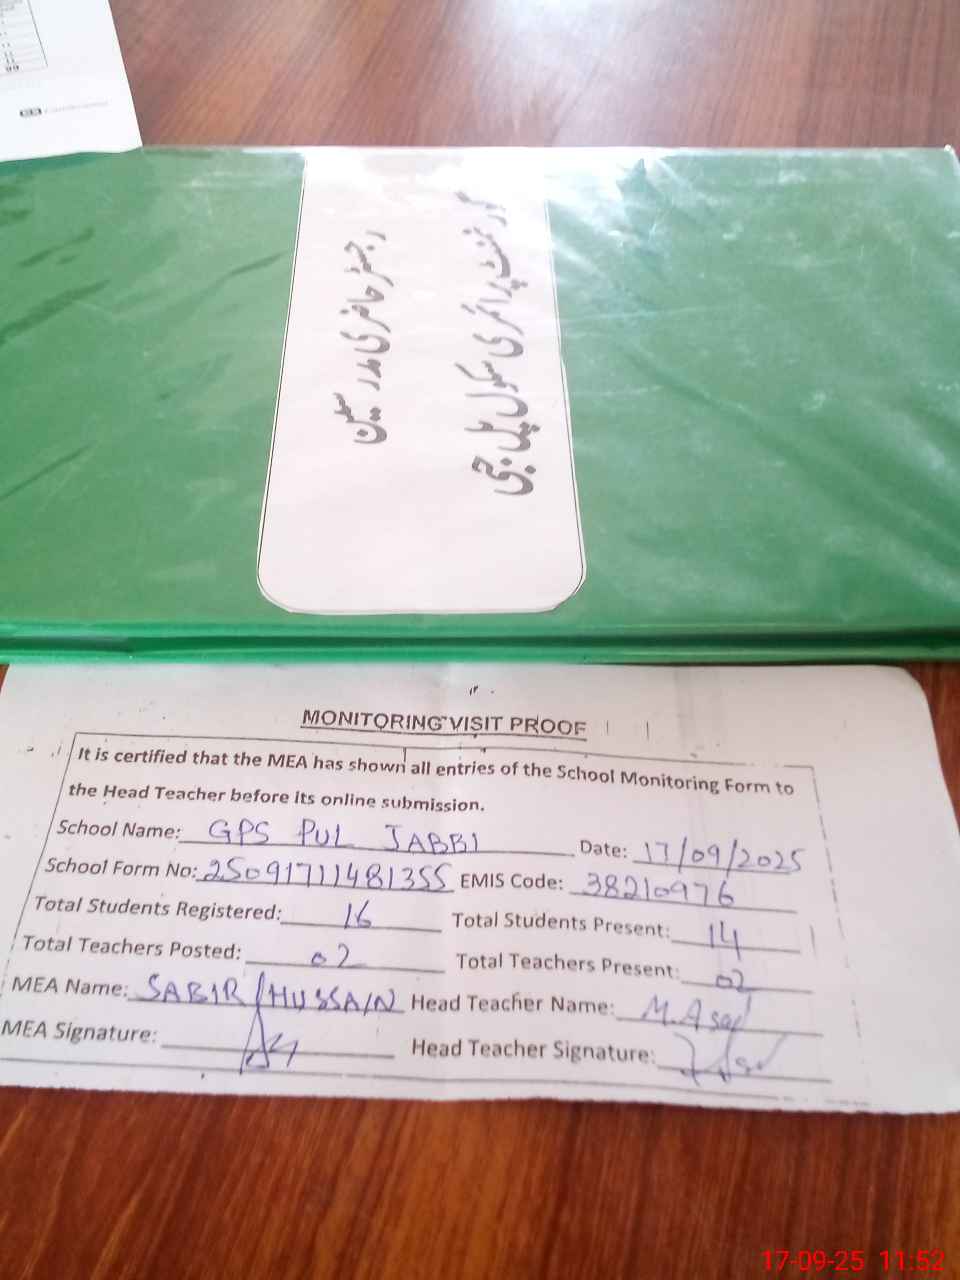 گورنمنٹ پرائمری سکول پل جبی
رجسٹر حاضری مدرسین
MONITORING VISIT PROOF
It is certified that the MEA has shown all entries of the School Monitoring Form to
the Head Teacher before its online submission.
School Name: GPS PUL JABBI Date: 17/09/2025
School Form No: 25091711481355 EMIS Code: 38210976
Total Students Registered: 16 Total Students Present: 14
Total Teachers Posted: 02 Total Teachers Present: 02
MEA Name: SABIR HUSSAIN Head Teacher Name: M. Asad
MEA Signature: Head Teacher Signature:
17-09-25 11:52